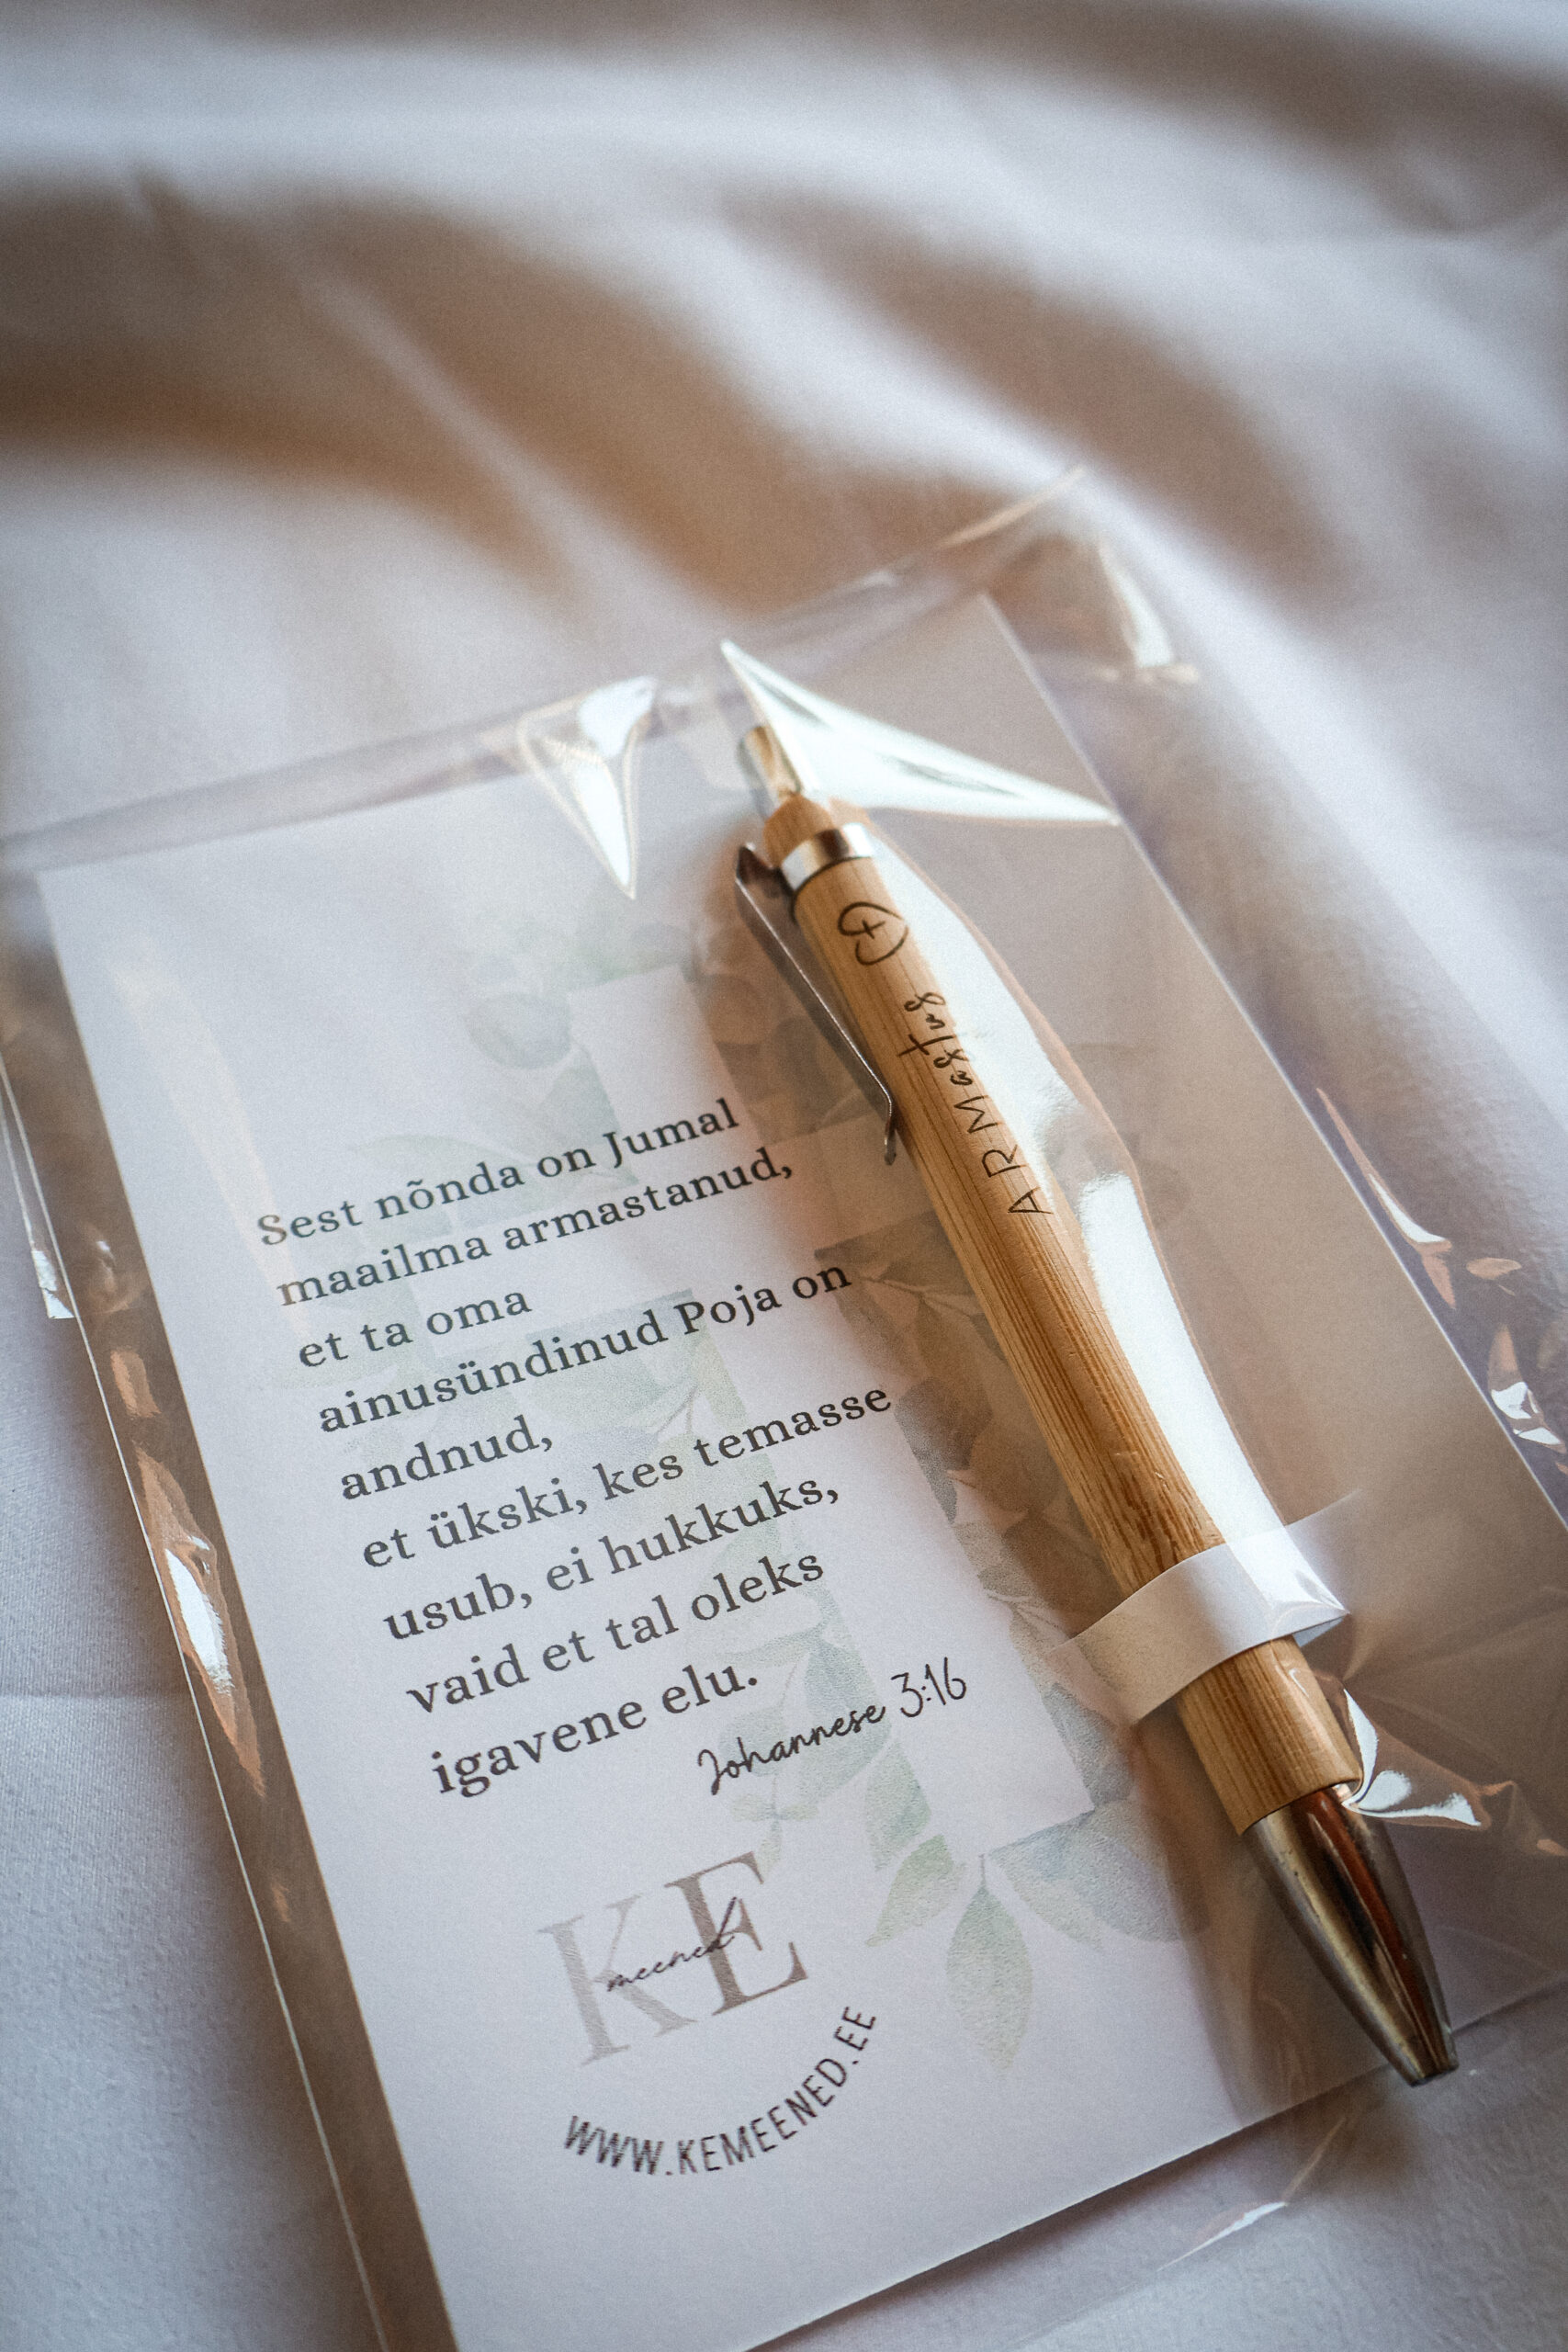 Sest nõnda on Jumal
maailma armastanud,
et ta oma
ainusündinud Poja on
andnud,
et ükski, kes temasse
usub, ei hukkuks,
vaid et tal oleks
igavene elu.
Johannese 3:16
KE
meened
WWW.KEMEENED.EE
ARMastus